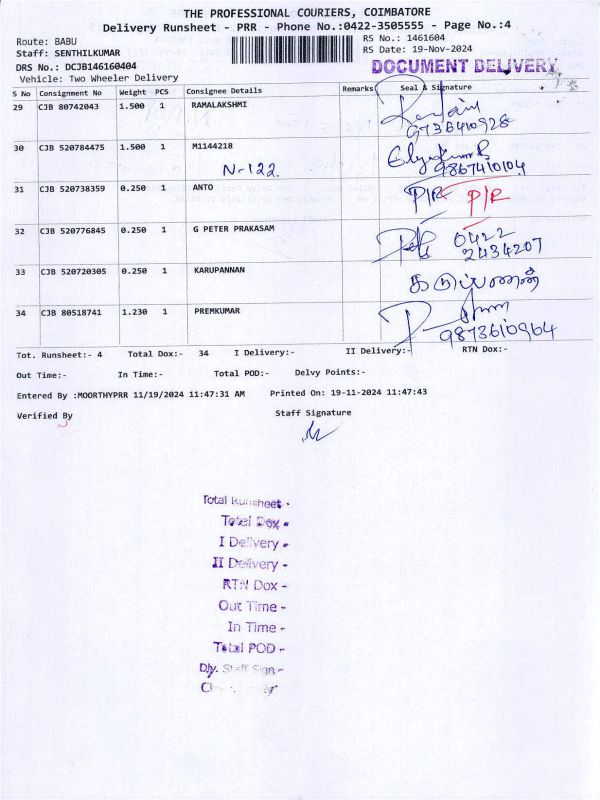 THE PROFESSIONAL COURIERS, COIMBATORE
Delivery Runsheet - PRR - Phone No.:0422-3505555 - Page No.:4
Route: BABU
RS No.: 1461604
Staff: SENTHILKUMAR
RS Date: 19-Nov-2024
DRS No.: DCJB146160404
DOCUMENT DELIVERY
Vehicle: Two Wheeler Delivery
S No Consignment No Weight PCS Consignee Details Remarks Seal & Signature
29 CJB 80742043 1.500 1 RAMALAKSHMI
9736410928
30 CJB 520784475 1.500 1 M1144218
N-122 9867410104
31 CJB 520738359 0.250 1 ANTO P/R P/R
32 CJB 520776845 0.250 1 G PETER PRAKASAM 0422
2434207
33 CJB 520720305 0.250 1 KARUPANNAN
34 CJB 80518741 1.230 1 PREMKUMAR
9873610964
Tot. Runsheet:- 4 Total Dox:- 34 I Delivery:- II Delivery:- RTN Dox:-
Out Time:- In Time:- Total POD:- Delvy Points:-
Entered By :MOORTHYPRR 11/19/2024 11:47:31 AM Printed On: 19-11-2024 11:47:43
Verified By Staff Signature
Total Runsheet -
Total Dox -
I Delivery -
II Delivery -
RTN Dox -
Out Time -
In Time -
Total POD -
Dly. Staff Sign -